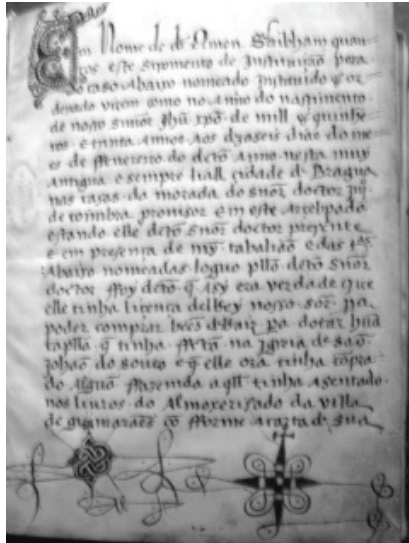 Em Nome de ds Amen Saibham quan
tos este stromento de Instituição pera
o caso abaixo nomeado Instituido & or
denado virem como no anno do nasçimento
de nosso senhor Jhũ xpõ de mill & quinhe
tos & trinta annos aos dzaseis dias do me
es de ffevereiro do dcto anno nesta muy
antigua e sempre liall çidade de Bragua
nas casas da morada do snor doctor
de coimbra provisor em este arçebpado
estando elle dcto snor doctor presente
e em presença de my tabaliaõ e das tas
abaixo nomeadas loguo pllo dcto snor
doctor ffoy dcto q asy era verdade que
elle tinha liçença dellRey nosso sor pa
poder comprar bẽes de Raiz pa dotar huã
capella q tinha ffeta na Igreia de saõ
Johaõ do souto e q elle ora tinha compra
do alguã ffazemda a qll tinha asentado
nos livros do Almoxerifado da villa
de guimaraẽs cõ fforme a carta de sua